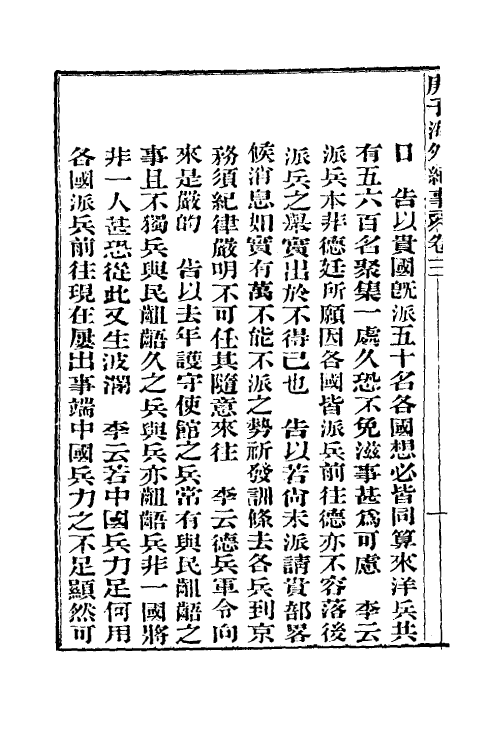 庚子海外紀事卷二
口　告以貴國既派五十名各國想必皆同算來洋兵共
有五六百名聚集一處久恐不免滋事甚爲可慮　李云
派兵本非德廷所願因各國皆派兵前往德亦不容落後
派兵之舉實出於不得已也　告以若尙未派請貴部畧
候消息如實有萬不能不派之勢祈發訓條去各兵到京
務須紀律嚴明不可任其隨意來往　李云德兵軍令向
來是嚴的　告以去年護守使館之兵常有與民齟齬之
事且不獨兵與民齟齬久之兵與兵亦齟齬兵非一國將
非一人甚恐從此又生波瀾　李云若中國兵力足何用
各國派兵前往現在屢出事端中國兵力之不足顯然可